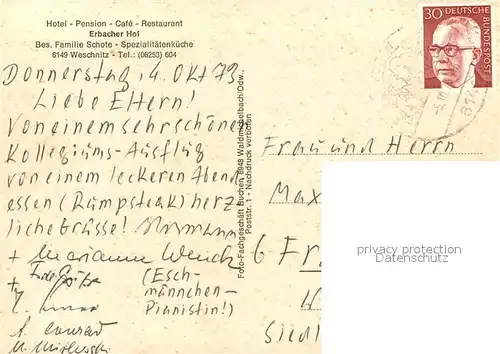 Hotel - Pension - Café - Restaurant
Erbacher Hof
Bes. Familie Schote - Spezialitätenküche
6149 Weschnitz - Tel.: (06253) 604
Donnerstag, 4. Okt 73
Liebe Eltern!
Von einem sehr schönen
Kollegiums-Ausflug
von einem leckeren Abend
essen (Rumpsteak) herz
liche Grüsse! Hermann
+ Marianne Wenck
(Esch-
männchen-
Pianistin!)
A. Conrad
Foto-Fachgeschäft Buchen, 6948 Waldmichelbach/Odw.
Poststr. 1 - Nachdruck verboten
30 DEUTSCHE
BUNDESPOST
Frau und Herrn
Max
6 Fr
Siedl
privacy protection